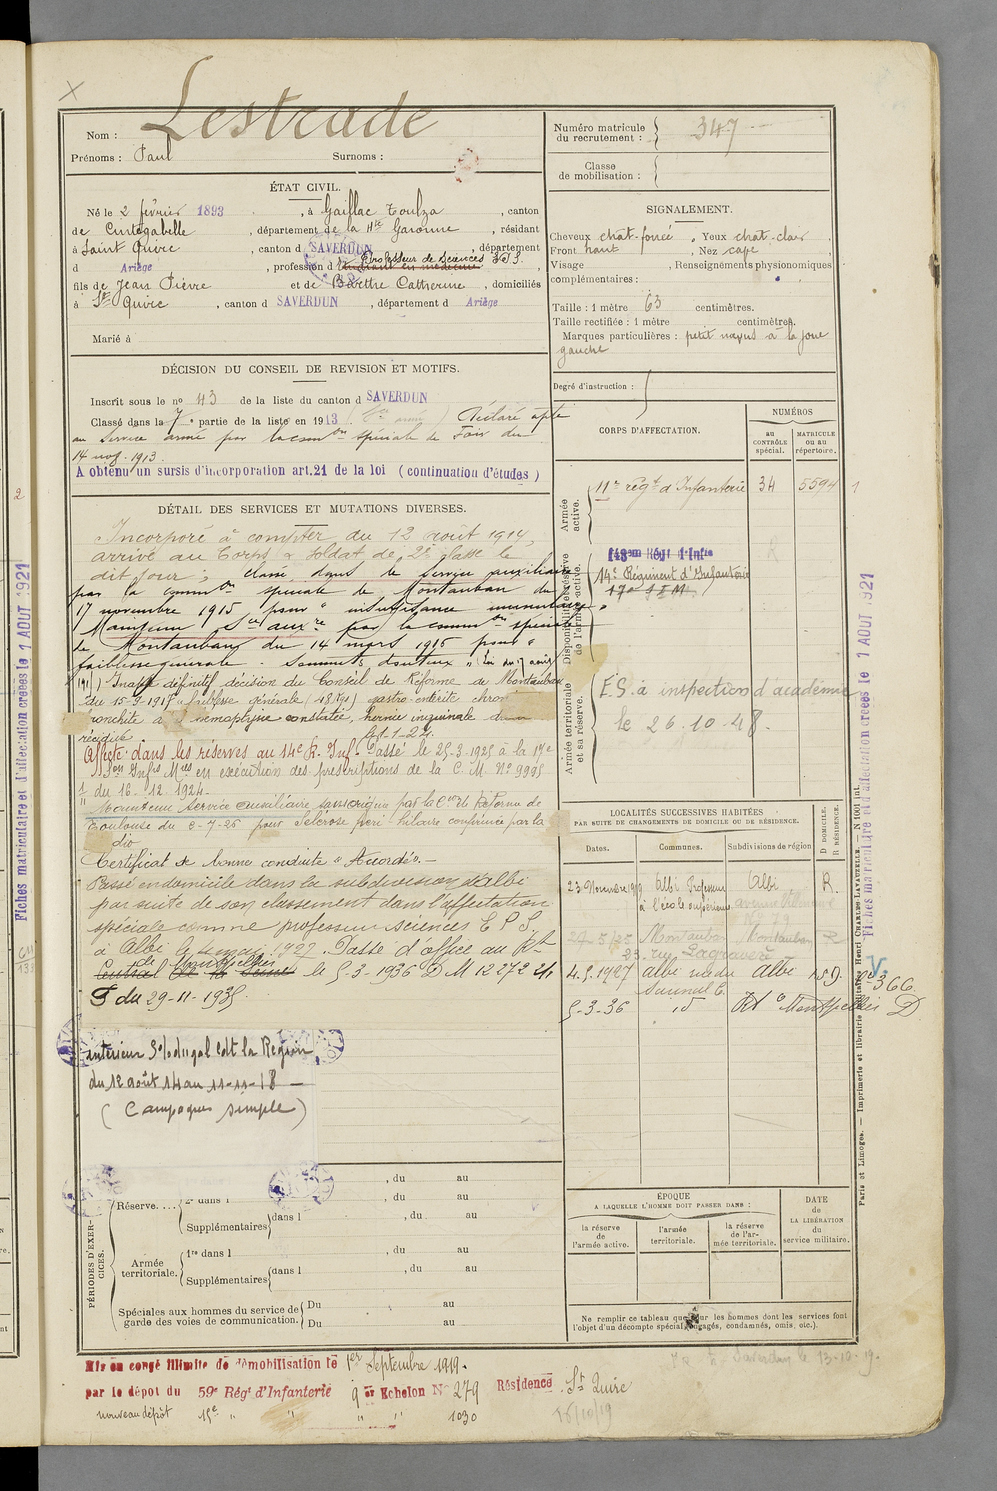 Lestrade
Nom :
Prénoms : Paul Surnoms :
Numéro matricule du recrutement : 347
Classe de mobilisation :
ÉTAT CIVIL.
Né le 2 février 1893, à Gaillac Toulza, canton
de Cintegabelle, département de la Hte Garonne, résidant
à Saint Quirc, canton d SAVERDUN, département
d Ariège, profession d Professeur de Sciences
fils de Jean Pierre et de Catherine, domiciliés
à St Quirc, canton d SAVERDUN, département d Ariège
Marié à
SIGNALEMENT.
Cheveux chat-foncé, Yeux chat-clair,
Front haut, Nez cave,
Visage , Renseignements physionomiques
complémentaires :
Taille : 1 mètre 63 centimètres.
Taille rectifiée : 1 mètre centimètres.
Marques particulières : petit nævus à la joue
gauche
Degré d'instruction :
DÉCISION DU CONSEIL DE REVISION ET MOTIFS.
Inscrit sous le no 43 de la liste du canton d SAVERDUN
Classé dans la 7e partie de la liste en 1913 Déclaré apte
au Service armé par la comon spéciale de Foix du
14 nov. 1913.
A obtenu un sursis d'incorporation art.21 de la loi (continuation d'études)
DÉTAIL DES SERVICES ET MUTATIONS DIVERSES.
Incorporé à compter du 12 août 1914,
arrivé au Corps & soldat de 2e classe le
dit jour ; classé dans le service auxiliaire
par la common spéciale de Montauban du
17 novembre 1915 pour "insuffisance musculaire"
Maintenu Sce auxre par la common spéciale
de Montauban du 14 mars 1916 pour "
faiblesse générale. Sommets douteux" (Loi du 17 août
1915) Inapte définitif décision du Conseil de Réforme de Montauban
du 15-3-1917 "faiblesse générale (48 Kgs) gastro-entérite chron
bronchite à hémoptysie constatée, hernie inguinale
récidivé
Affecté dans les réserves au 14e R. Inf. Passé le 25-3-1925 à la 17e
Son Infrs Mres en exécution des prescriptions de la C. M. No 9995
du 16-12-1924.
Maintenu service auxiliaire sans crique par la Con de Réforme de
Toulouse du 8-7-26 pour Sclérose péri-hilaire confirmée par la
dio
Certificat de bonne conduite "Accordé".
Passé en domicile dans la subdivision d'Albi
par suite de son classement dans l'affectation
spéciale comme professeur sciences E P S
à Albi 1927. Passé d'office au Rt
Central de la Seine de Montpellier le 5-3-1936 D M 12272 2/1
P du 29-11-1935.
intérieur Sold cdt la Région
du 12 août 14 au 11-11-18
(Campagne simple)
CORPS D'AFFECTATION.
NUMÉROS
au CONTRÔLE spécial.
MATRICULE ou au répertoire.
Armée active.
11e régt d'Infanterie 34 5594
Disponibilité et réserve de l'armée active.
143em Régt d'Infie
14e Régiment d'Infanterie
17e S I M
Armée territoriale et sa réserve.
E.S. à inspection d'académie
le 26-10-48.
LOCALITÉS SUCCESSIVES HABITÉES
PAR SUITE DE CHANGEMENTS DE DOMICILE OU DE RÉSIDENCE.
Dates. Communes. Subdivisions de région D DOMICILE. R RÉSIDENCE.
23 Novembre 1919 Albi Professeur à l'école supérieure Albi R.
avenue Villeneuve No 79
27-5/25 Montauban Montauban R
23, rue Lagravère
4.5.1927 Albi Albi
5-3-36 id Rt Ct Montpellier D
366
ÉPOQUE
A LAQUELLE L'HOMME DOIT PASSER DANS :
la réserve de l'armée active.
l'armée territoriale.
la réserve de l'armée territoriale.
DATE de LA LIBÉRATION du service militaire.
Ne remplir ce tableau que pour les hommes dont les services font
l'objet d'un décompte spécial (engagés, condamnés, omis, etc.).
PÉRIODES D'EXERCICES.
, du au
Réserve.... 2e dans l , du au
Supplémentaires dans l , du au
Armée territoriale. 1re dans l , du au
Supplémentaires dans l , du au
Spéciales aux hommes du service de garde des voies de communication. Du au
Du au
Mis en congé illimité de démobilisation le 1er Septembre 1919.
par le dépôt du 59e Régt d'Infanterie 9e Echelon No 279 Résidence St Quirc
nouveau dépôt 15e " " " " 1030
15/10/19
Saverdun le 13-10-19.
Fiches matriculaire et d'affectation créées le 1 AOUT 1921
Fiches matriculaire et d'affectation créées le 1 AOUT 1921
Paris et Limoges. — Imprimerie et librairie militaires Henri CHARLES-LAVAUZELLE. — N° 1001 int.